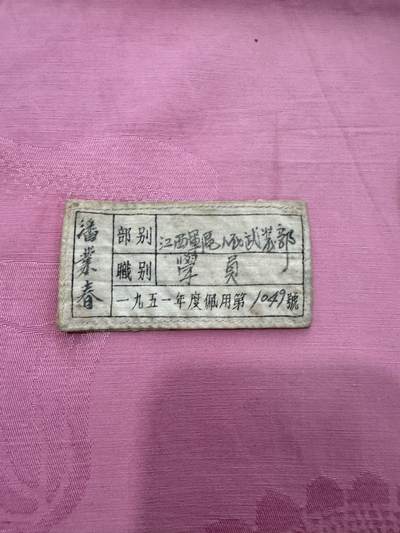 潘業春
部別 江西軍區人民武装部
職別 學員
一九五一年度佩用第1049號